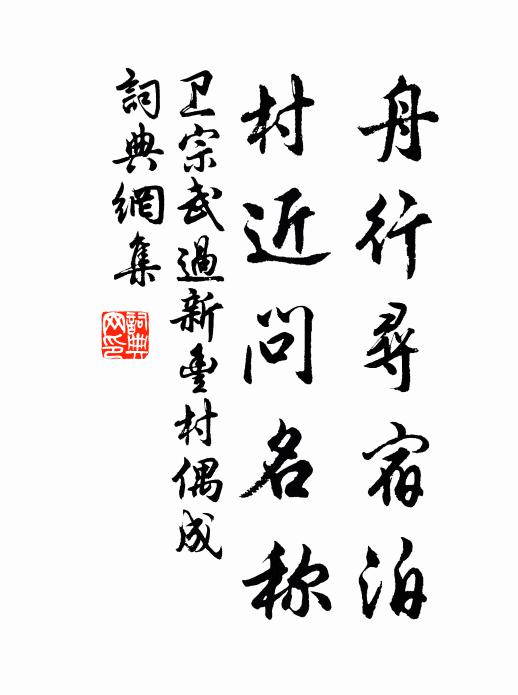 舟行尋宿泊
村近問名称
卫宗武過新豐村偶成
詞典網集
詞典網印